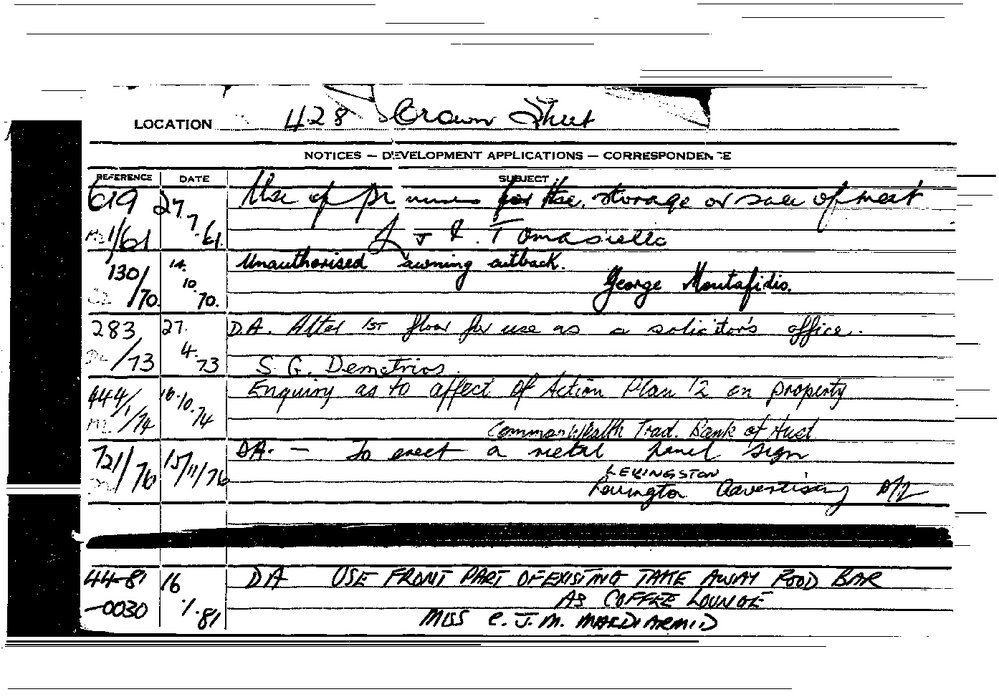 LOCATION 428 Crown Street
NOTICES — DEVELOPMENT APPLICATIONS — CORRESPONDENCE
REFERENCE DATE SUBJECT
619 27. Use of premises for the storage or sale of meat
1/61 7.61. J & L. Tomasiello
130/ 14. Unauthorised awning outback.
70. 10.70. George Moutafidis.
283 27. D.A. Alter 1ST floor for use as a solicitor's office.
/73 4.73 S. G. Demetrios.
444/ 16. Enquiry as to affect of Action Plan 12 on property
1/74 10.74 Commonwealth Trad. Bank of Aust
721/76 15/11/76 DA. — To erect a metal panel sign
LEVINGSTON
Levington Advertising P/L
44-81 16 DA USE FRONT PART OF EXISTING TAKE AWAY FOOD BAR
-0030 .1.81 AS COFFEE LOUNGE
MISS C. J. M. MACDIARMID